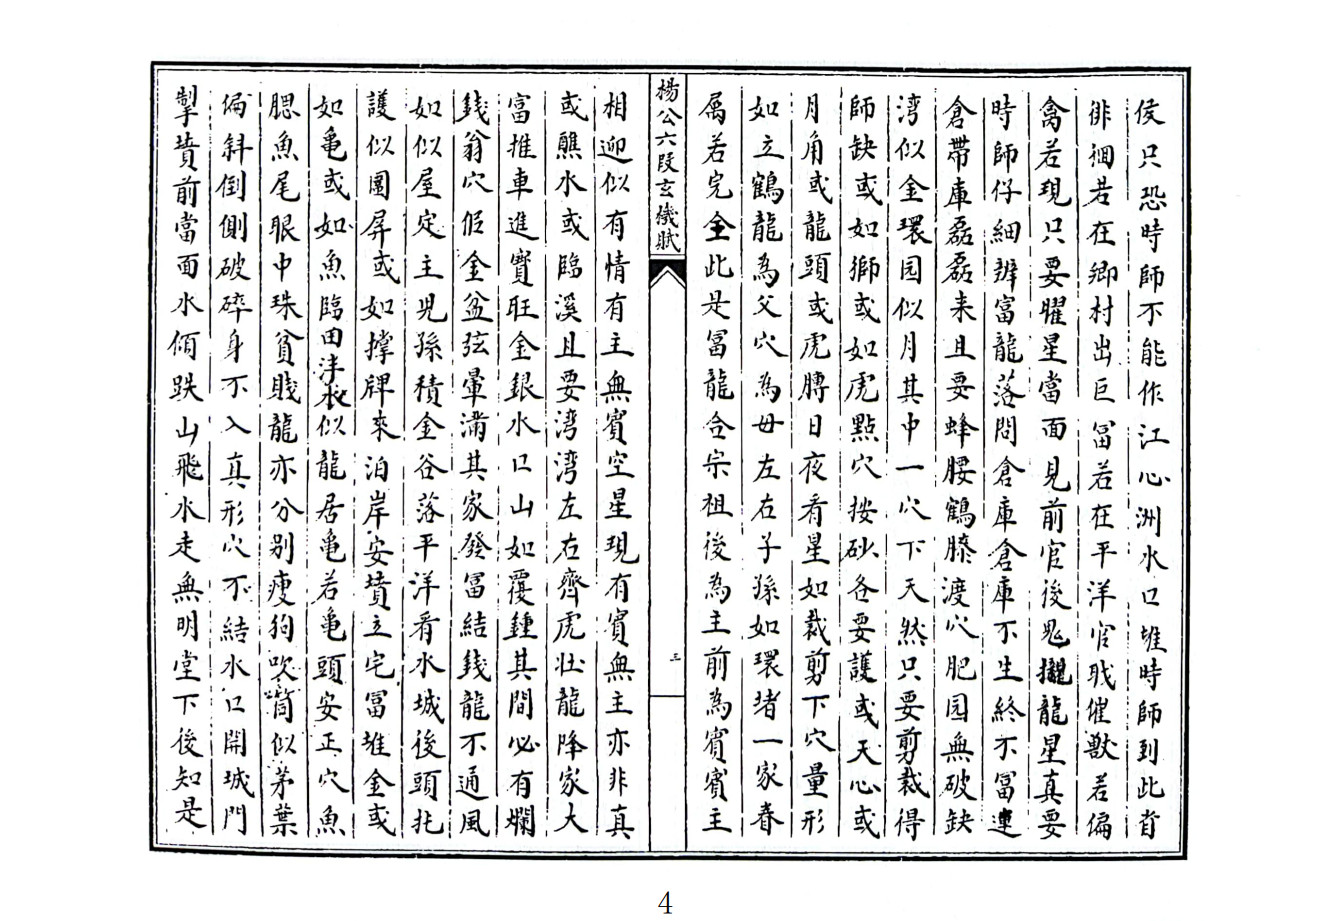 侯只恐時師不能作江心洲水口堆時師到此皆
徘徊若在鄉村出巨冨若在平洋官戝催獸若偏
禽若現只要臞星當面見前官後鬼攏龍星真要
時師仔細辨富龍落問倉庫倉庫不生終不冨連
倉帶庫磊磊来且要蜂腰鶴膝渡穴肥园無破缺
湾似金環园似月其中一穴下天然只要剪裁得
師缺或如獅或如虎點穴按砂各要護或天心或
月角或龍頭或虎膊日夜看星如裁剪下穴量形
如立鶴龍為父穴為母左右子孫如環堵一家眷
属若完全此是冨龍合宗祖後為主前為賓賓主
楊公六段玄機賦
三
相迎似有情有主無賓空星現有賓無主亦非真
或醮水或臨溪且要湾湾左右齊虎壯龍降家大
富推車進寶旺金銀水口山如覆鍾其間必有爛
錢翁穴佢金盆弦暈滿其家發冨結錢龍不通風
如似屋定主兒孫積金谷落平洋看水城後頭托
護似圍屏或如撑牌來泊岸安墳立宅冨堆金或
如亀或如魚臨田洋水似龍居亀若亀頭安正穴魚
腮魚尾眼中珠貧賎龍亦分别瘦狗吹筒似茅葉
偏斜倒側破碎身不入真形穴不結水口開城門
掣墳前當面水傾跌山飛水走無明堂下後知是
4